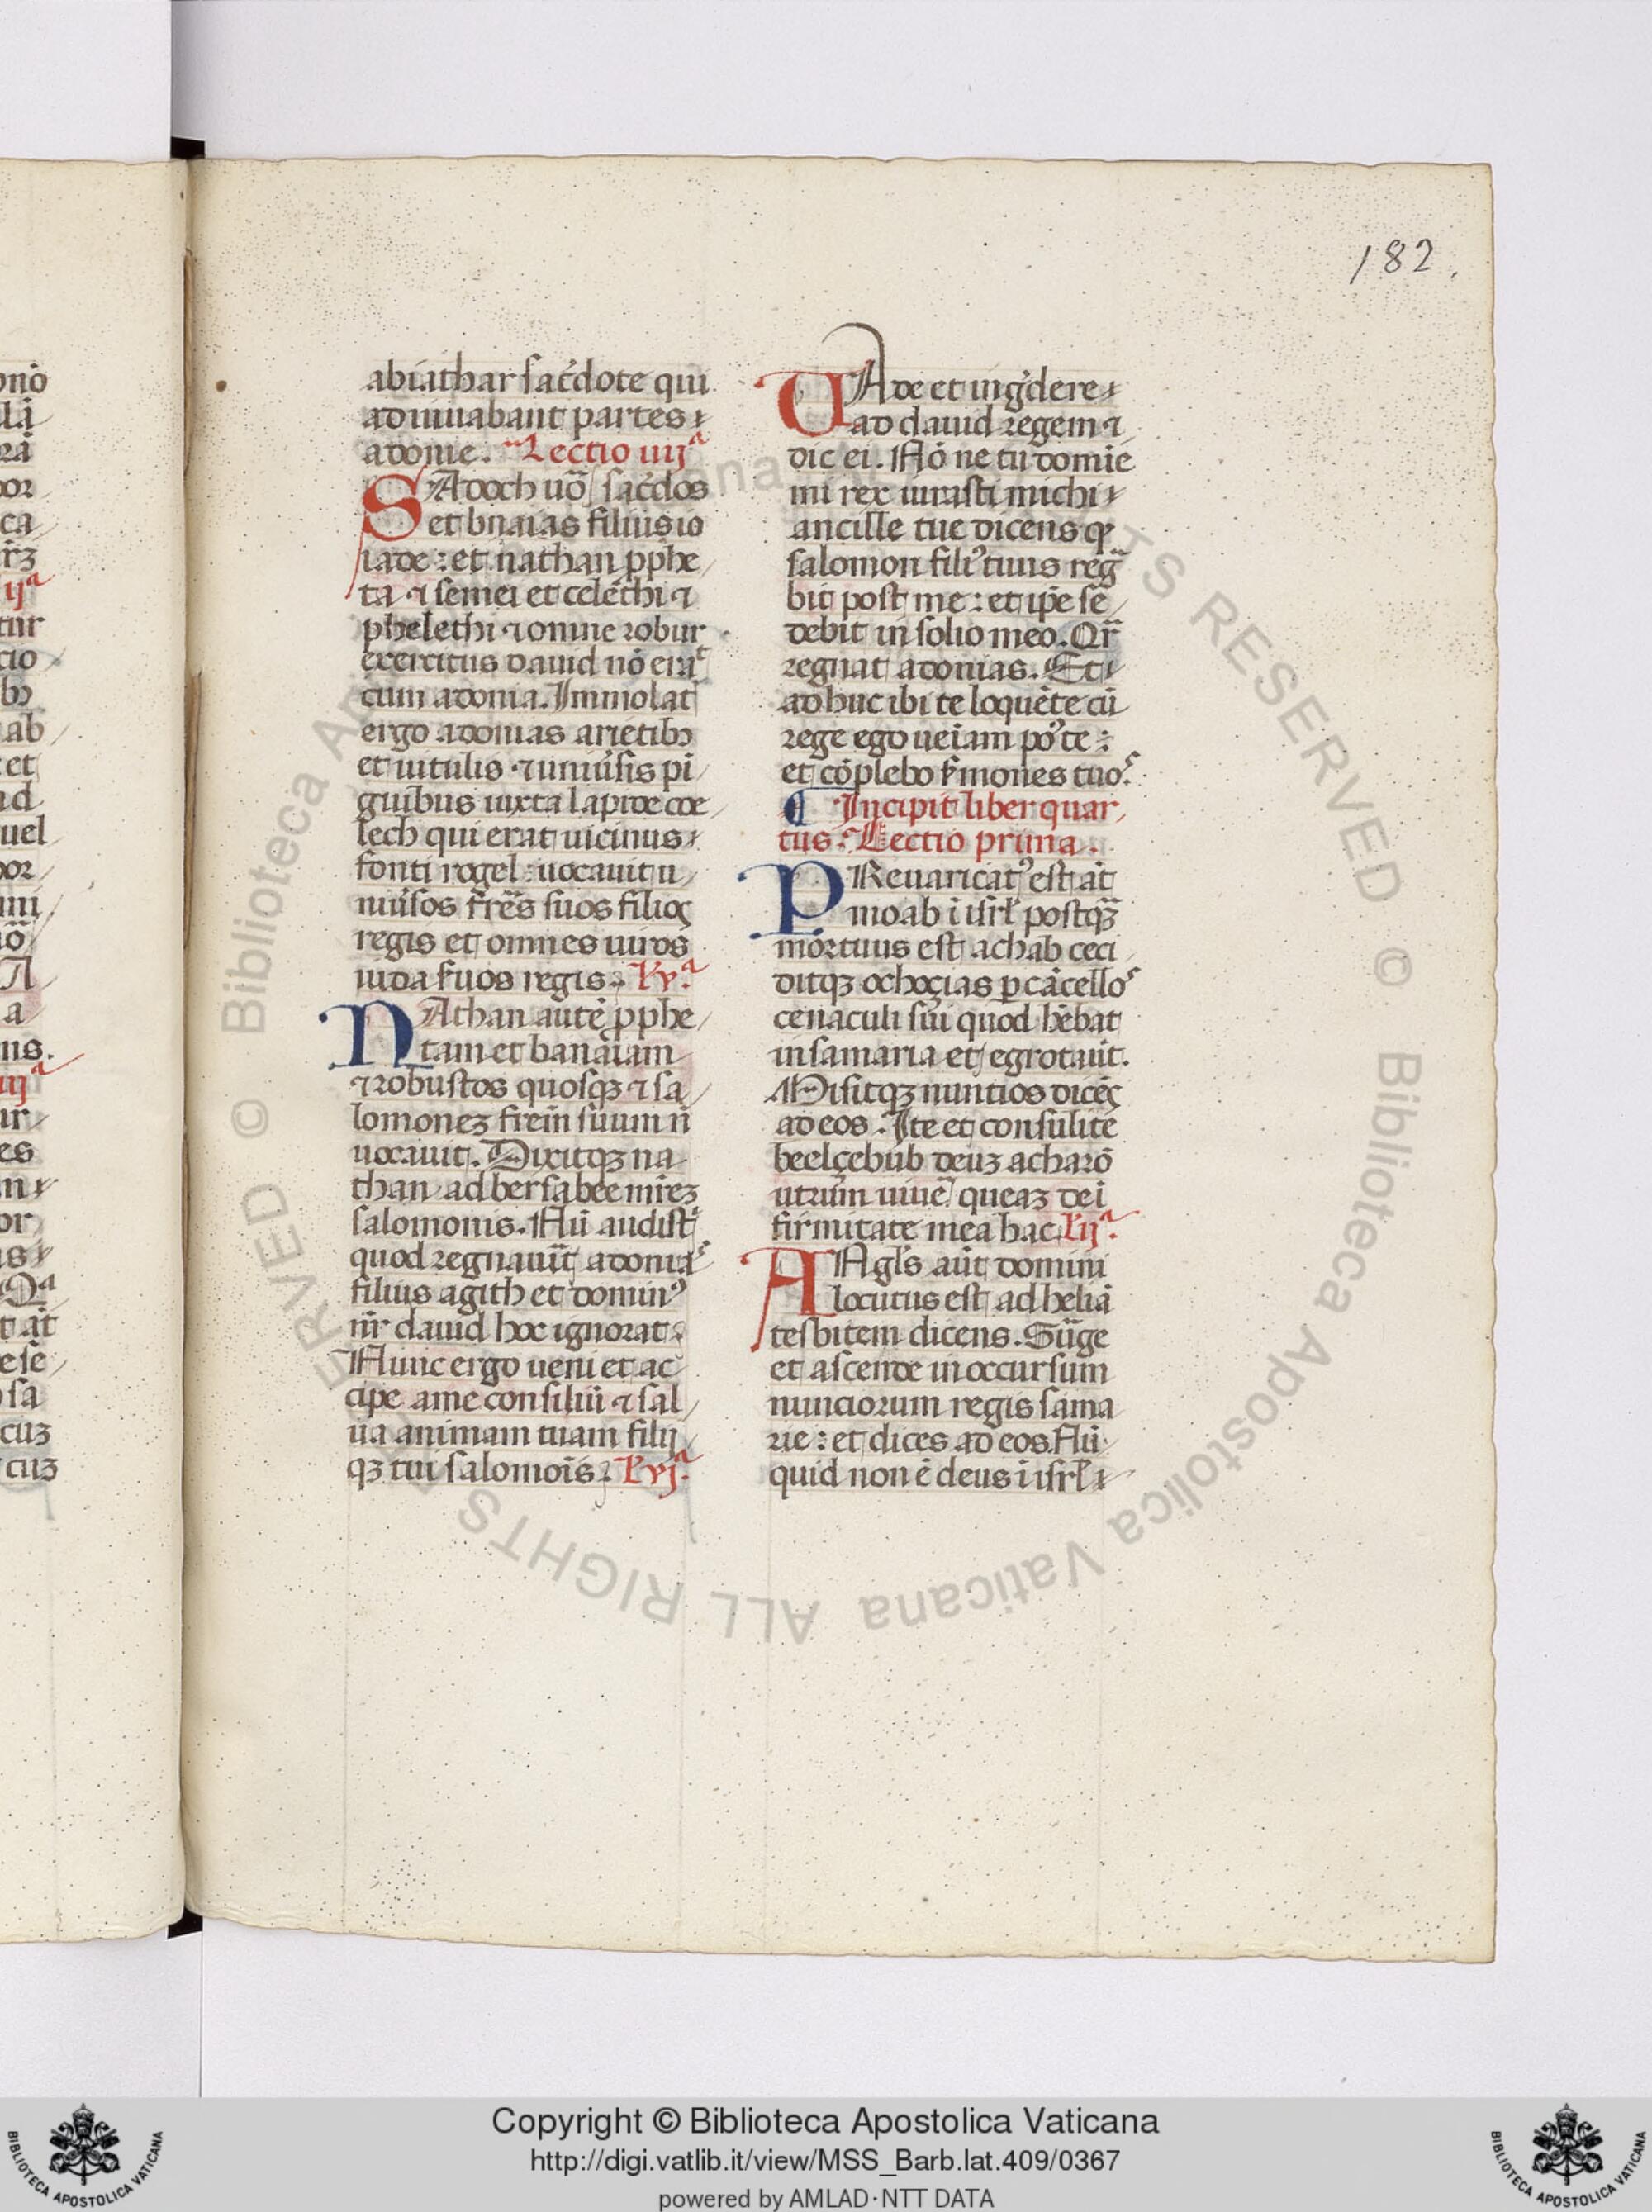 182.
abiathar sac̄dote qui
adiuuabant partes
adonie. Lectio iiijª
SAdoch uō sac̄dos
et bnaias filius io
iade : et nathan p̱phe
ta ⁊ semei et celēthi ⁊
phelethi ⁊ omne robur
exercitus dauid nō eraᵗ
cum adonia. Immolat
ergo adonias arietibꝫ
et uitulis ⁊ uniūsis pi
guibus iuxta lapide çoe
lech qui erat uicinus
fonti rogel : uocauit u
niūsos fr̄es suos filioς
regis et omnes uiros
iuda s̄uos regis. L̄ vª.
NAthan autē p̱phe
tam et banaiam
⁊ robustos quosqꝫ ⁊ sa
lomoneꝫ frēm suum n̄
uocauit. Dixitqꝫ na
than ad bersabee mr̄eꝫ
salomonis. Nū audistⁱ
quod regnauit̄ adoniaˢ
filius agith et dominꝰ
nr̄ dauid hoc ignorat.
Nunc ergo ueni et ac
cipe ame consiliū ⁊ sal
ua animam tuam filij
qꝫ tui salomoīs. L̄ vjª.
UAde et ing̾dere
ad dauid regem ⁊
dic ei. Nō ne tu domīe
mi rex iurasti michi
ancille tue dicens ꝙ
salomon filiꝰ tuus reg̃
bit post me : et ip̄e se
debit in solio meo. Qr̃
regnat adonias. Et
adhuc ibi te loquēte cū
rege ego ueiam poꝰ te :
et cōplebo s̄mones tuoˢ.
¶ Incipit liber quar
tus. Lectio prima.
PReuaricatꝰ est at̄
moab ī isrł postq̃ꝫ
mortuus est achab ceci
ditqꝫ ochoçias ꝑ cācelloˢ
cenaculi sui quod hēbat
in samaria et egrotauit.
Misitqꝫ nuntios dicēς
ad eos. Ite et consulite
beelçebub deuꝫ acharō
utrum uiuē queaꝫ de i
firmitate mea hac. L̄ ijª.
ANgłs aūt domini
locutus est ad heliā
tesbitem dicens. Sūge
et ascende in occursum
nunciorum regis sama
rie : et dices ad eos. Nū
quid non ē deus ī isrł
Copyright © Biblioteca Apostolica Vaticana
http://digi.vatlib.it/view/MSS_Barb.lat.409/0367
powered by AMLAD·NTT DATA
BIBLIOTECA APOSTOLICA VATICANA
BIBLIOTECA APOSTOLICA VATICANA